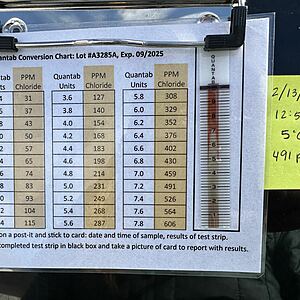 uantab Conversion Chart: Lot #A3285A, Exp. 09/2025
ntab PPM Quantab PPM Quantab PPM
ts Chloride Units Chloride Units Chloride
4 31 3.6 127 5.8 308
6 37 3.8 140 6.0 329
8 43 4.0 154 6.2 352
0 50 4.2 168 6.4 376
2 57 4.4 183 6.6 402
4 65 4.6 198 6.8 430
6 74 4.8 214 7.0 459
8 83 5.0 231 7.2 491
0 93 5.2 249 7.4 526
2 104 5.4 268 7.6 564
4 115 5.6 287 7.8 606
on a post-it and stick to card: date and time of sample, results of test strip.
completed test strip in black box and take a picture of card to report with results.
QUANTAB
2/13/
12:5
5°
491 p